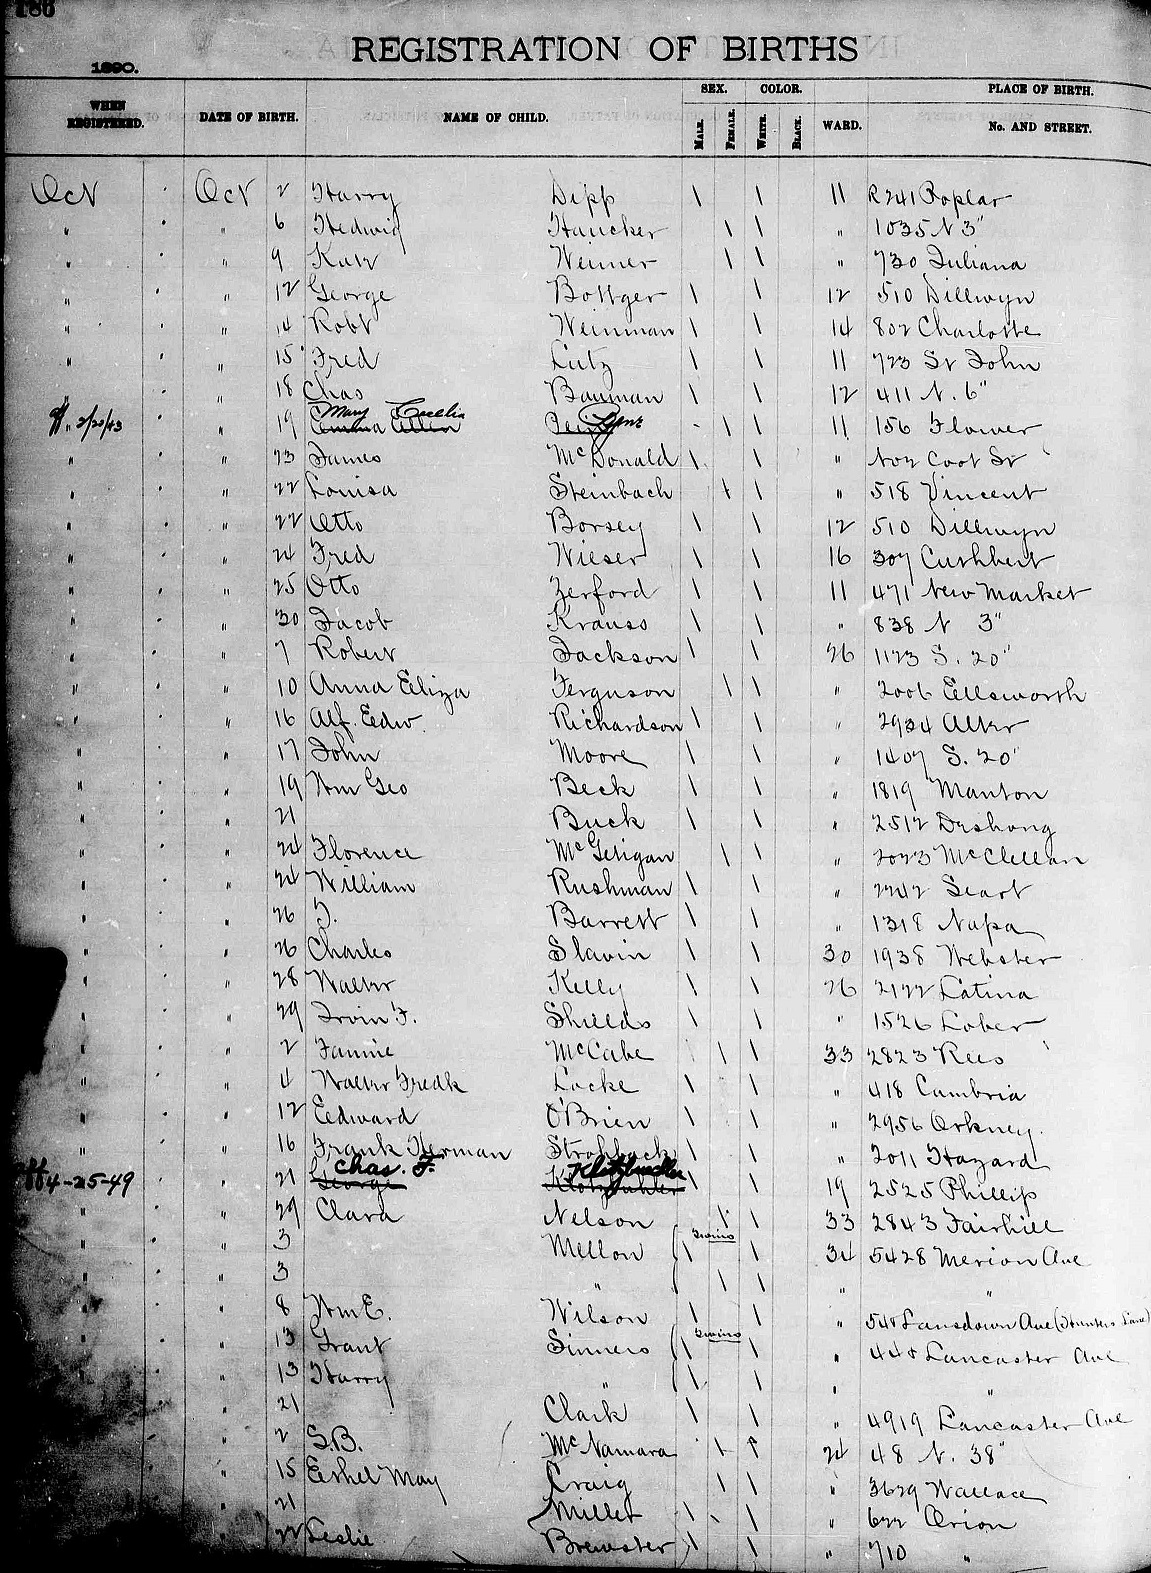 186
REGISTRATION OF BIRTHS
1890.
WHEN REGISTERED. DATE OF BIRTH. NAME OF CHILD. SEX. COLOR. WARD. PLACE OF BIRTH.
MALE. FEMALE. WHITE. BLACK. No. AND STREET.
Oct Oct 2 Harry Dipp | | 11 R241 Poplar
" " 6 Hedwig Haucker | | " 1035 N 3"
" " 9 Weimer | | " 730 Juliana
" " 12 George Bottger | | 12 510 Dillwyn
" " 14 Robt Weinman | | 14 802 Charlotte
" " 15 Fred Lutz | | 11 723 St John
" " 18 Chas Bauman | | 12 411 N. 6"
2/20/43 " 19 Emma Ellen Mary Cecelia | | 11 156 Flower
" " 23 James McDonald | | " No 2 Coot St
" " 22 Louisa Steinbach | | " 518 Vincent
" " 22 Otto Borsey | | 12 510 Dillwyn
" " 24 Fred Wieser | | 16 307 Cuthbert
" " 25 Otto Zerford | | 11 471 New Market
" " 30 Jacob Krauss | | " 838 N 3"
" " 7 Robert Jackson | | 26 1123 S. 20"
" " 10 Anna Eliza Ferguson | | " 2006 Ellsworth
" " 16 Alf. Edw. Richardson | | " 2934 Alter
" " 17 John Moore | | " 1407 S. 20"
" " 19 Wm Geo Beck | | " 1819 Manton
" " 21 Buck | | " 2512 Deshong
" " 24 Florence McGettigan | | " 2023 McClellan
" " 24 William Rushman | | " 2242
" " 26 Barrett | | " 1318 Napa
" " 26 Charles Slavin | | 30 1938 Webster
" " 28 Walter Kelly | | 26 2122 Latina
" " 29 Irvin F. Shields | | " 1526 Lober
" " 2 Fannie McCabe | | 33 2823 Rees
" " 4 Walter Fredk Locke | | " 418 Cambria
" " 12 Edward O'Brien | | " 2956 Orkney.
" " 16 Frank Herman Strohbeck | | " 2011 Hazard
4-25-49 " 21 George Chas. F. | | 19 2525 Phillip
" " 29 Clara Nelson | | 33 2843 Fairhill
" " 3 Mellon Twins | | 34 5428 Merion Ave
" " 3 " | | " "
" 8 Wm E. Wilson | | " Lansdown Ave (Hunters Lane)
" 13 Grant Sinners Twins | | " Lancaster Ave
" 13 Harry " | | " "
" 21 Clark | | " 4919 Lancaster Ave
" 2 S.B. McNamara | | 24 48 N. 38"
" 15 Ethel May Craig | | " 3629 Wallace
" 21 Miller | | " 622 Orion
" 22 Leslie Brewster | | " 710 "